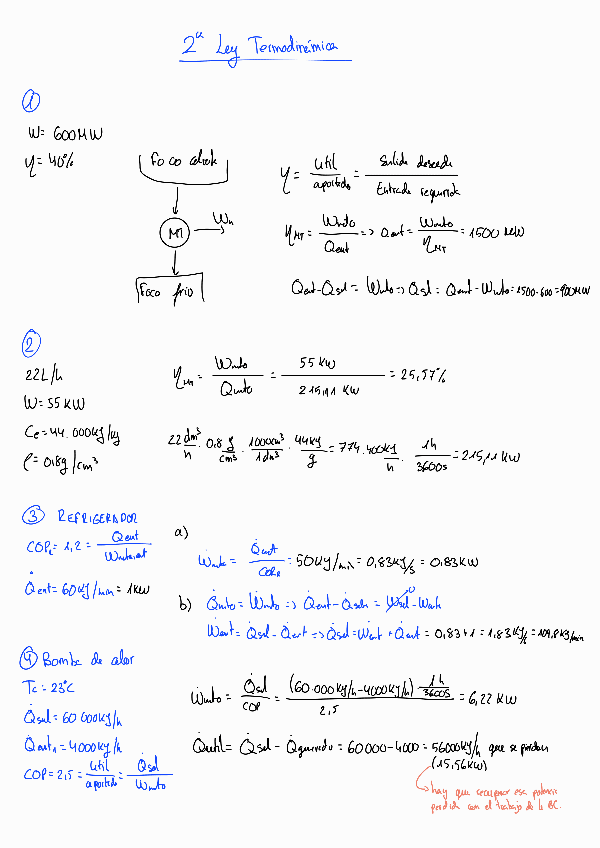 2ª Ley Termodinámica
1
W= 600MW
η= 40%
Foco caliente
MT
Wn
Foco frío
η = útil / aportado = Salida deseada / Entrada requerida
η_MT = Wneto / Qent => Qent = Wneto / η_MT = 1500 MW
Qent-Qsal = Wneto => Qsal = Qent-Wneto = 1500-600 = 900MW
2
22L/h
W= 55KW
Ce=44.000KJ/Kg
ρ= 0,8g/cm³
η_MT = Wneto / Qneto = 55 KW / 215,11 KW = 25,57%
22 dm³/h · 0,8 g/cm³ · 1000cm³/1dm³ · 44KJ/g = 774.400KJ/h · 1h/3600s = 215,11 KW
3 REFRIGERADOR
COP_R = 1,2 = Q̇ent / Ẇneto,ent
Q̇ent = 60KJ/min = 1KW
a)
Ẇneto = Q̇ent / COP_R = 50KJ/min = 0,83KJ/s = 0,83KW
b) Q̇neto = Ẇneto => Q̇ent-Q̇sal = Ẇsal⁰ - Ẇent
Ẇent = Q̇sal - Q̇ent => Q̇sal = Ẇent + Q̇ent = 0,83+1 = 1,83KJ/s = 109,8KJ/min
4 Bomba de calor
Tc = 23°C
Q̇sal = 60 000KJ/h
Q̇ent₁ = 4000KJ/h
COP = 2,5 = útil / aportado = Q̇sal / Ẇneto
Ẇneto = Q̇sal / COP = (60.000KJ/h-4000KJ/h) 1h/3600s / 2,5 = 6,22 KW
Q̇útil = Q̇sal - Q̇generado = 60000-4000 = 56000KJ/h que se pierden
(15,56KW)
hay que recuperar esa potencia
perdida con el trabajo de la BC.